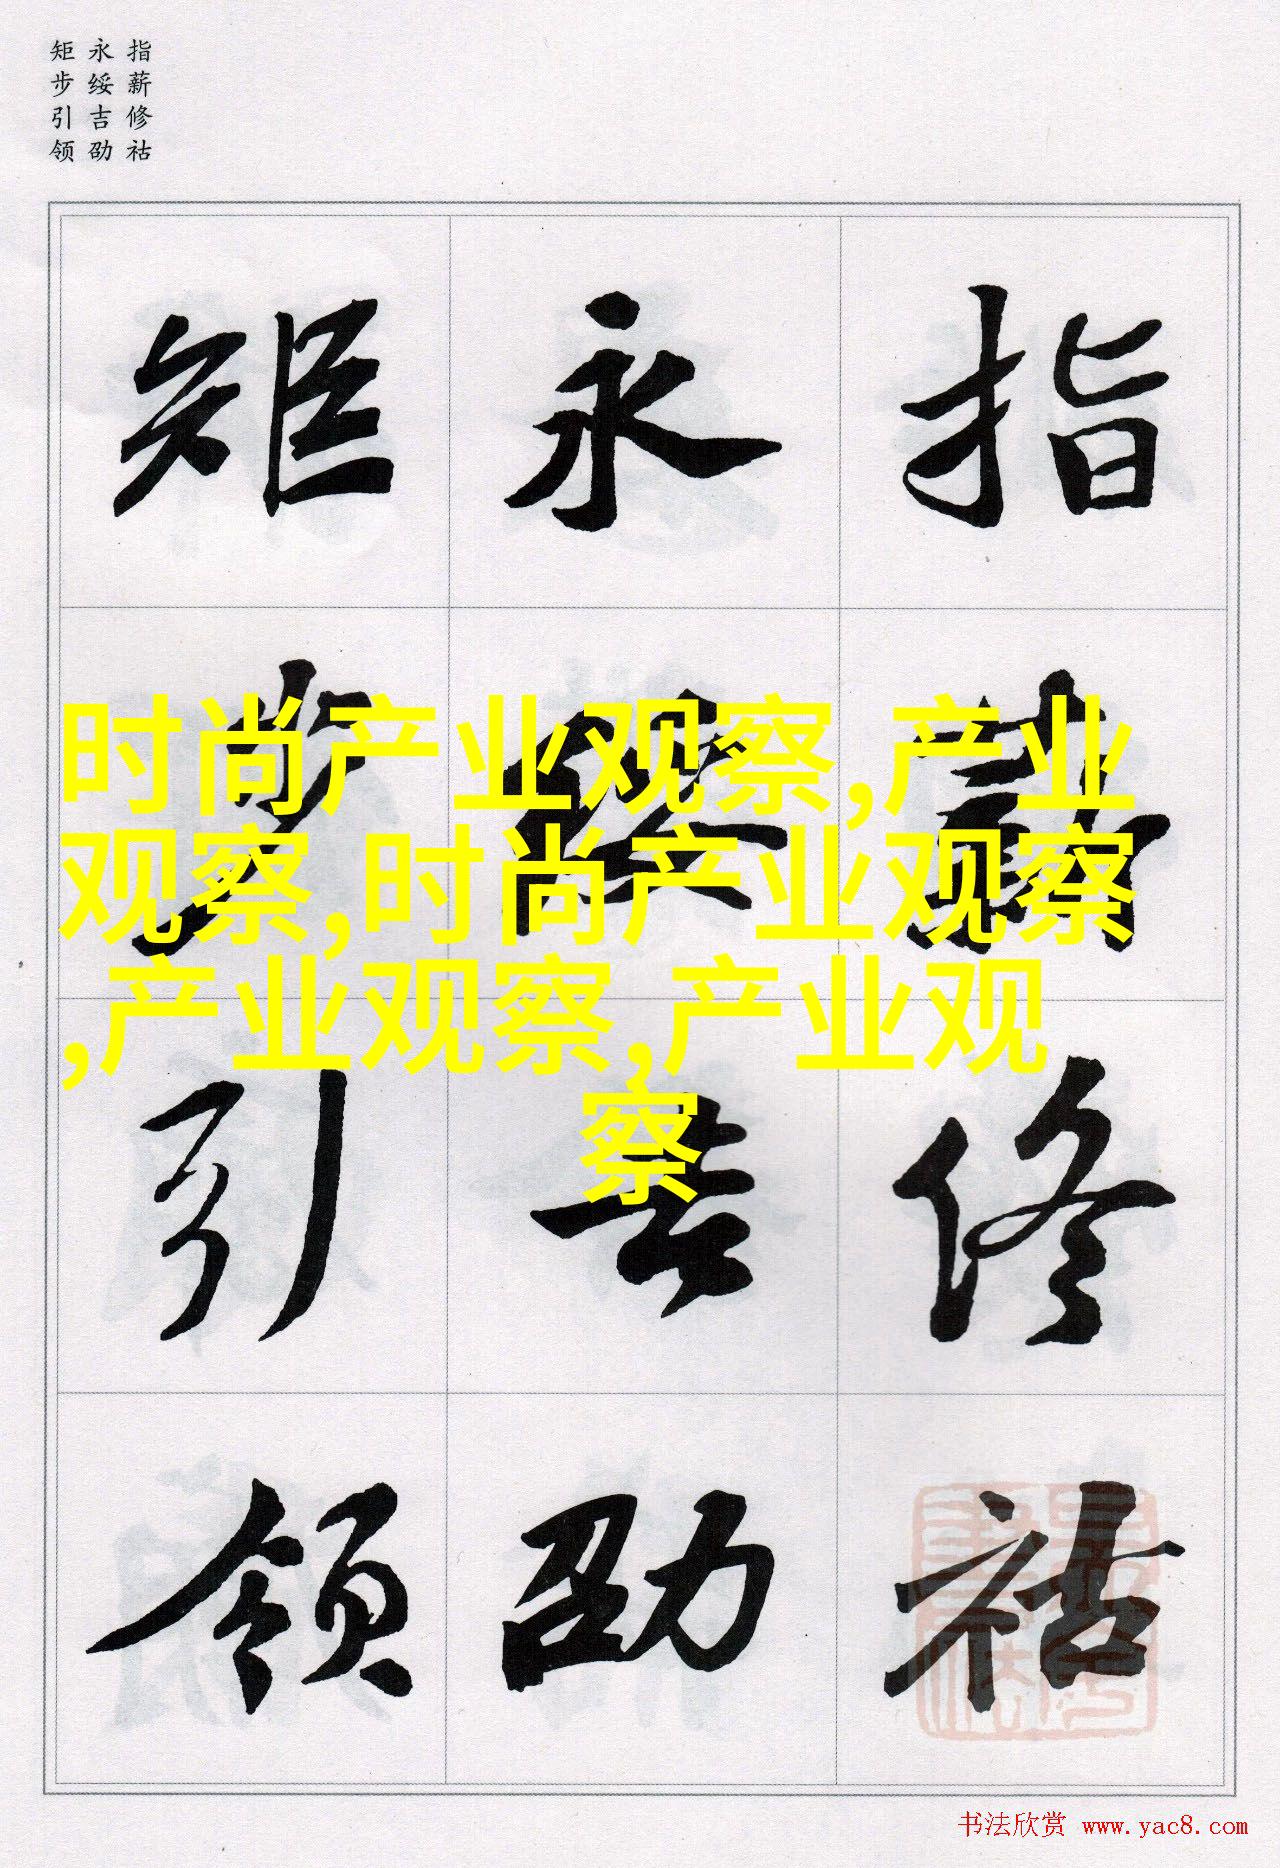 指薪修祜
永绥吉劭
矩步引领
指薪修祜
永绥吉劭
矩步引领
时尚产业观察,产业
观察,时尚产业观察
,产业观察,产业观
察
书法欣赏 www.yac8.com